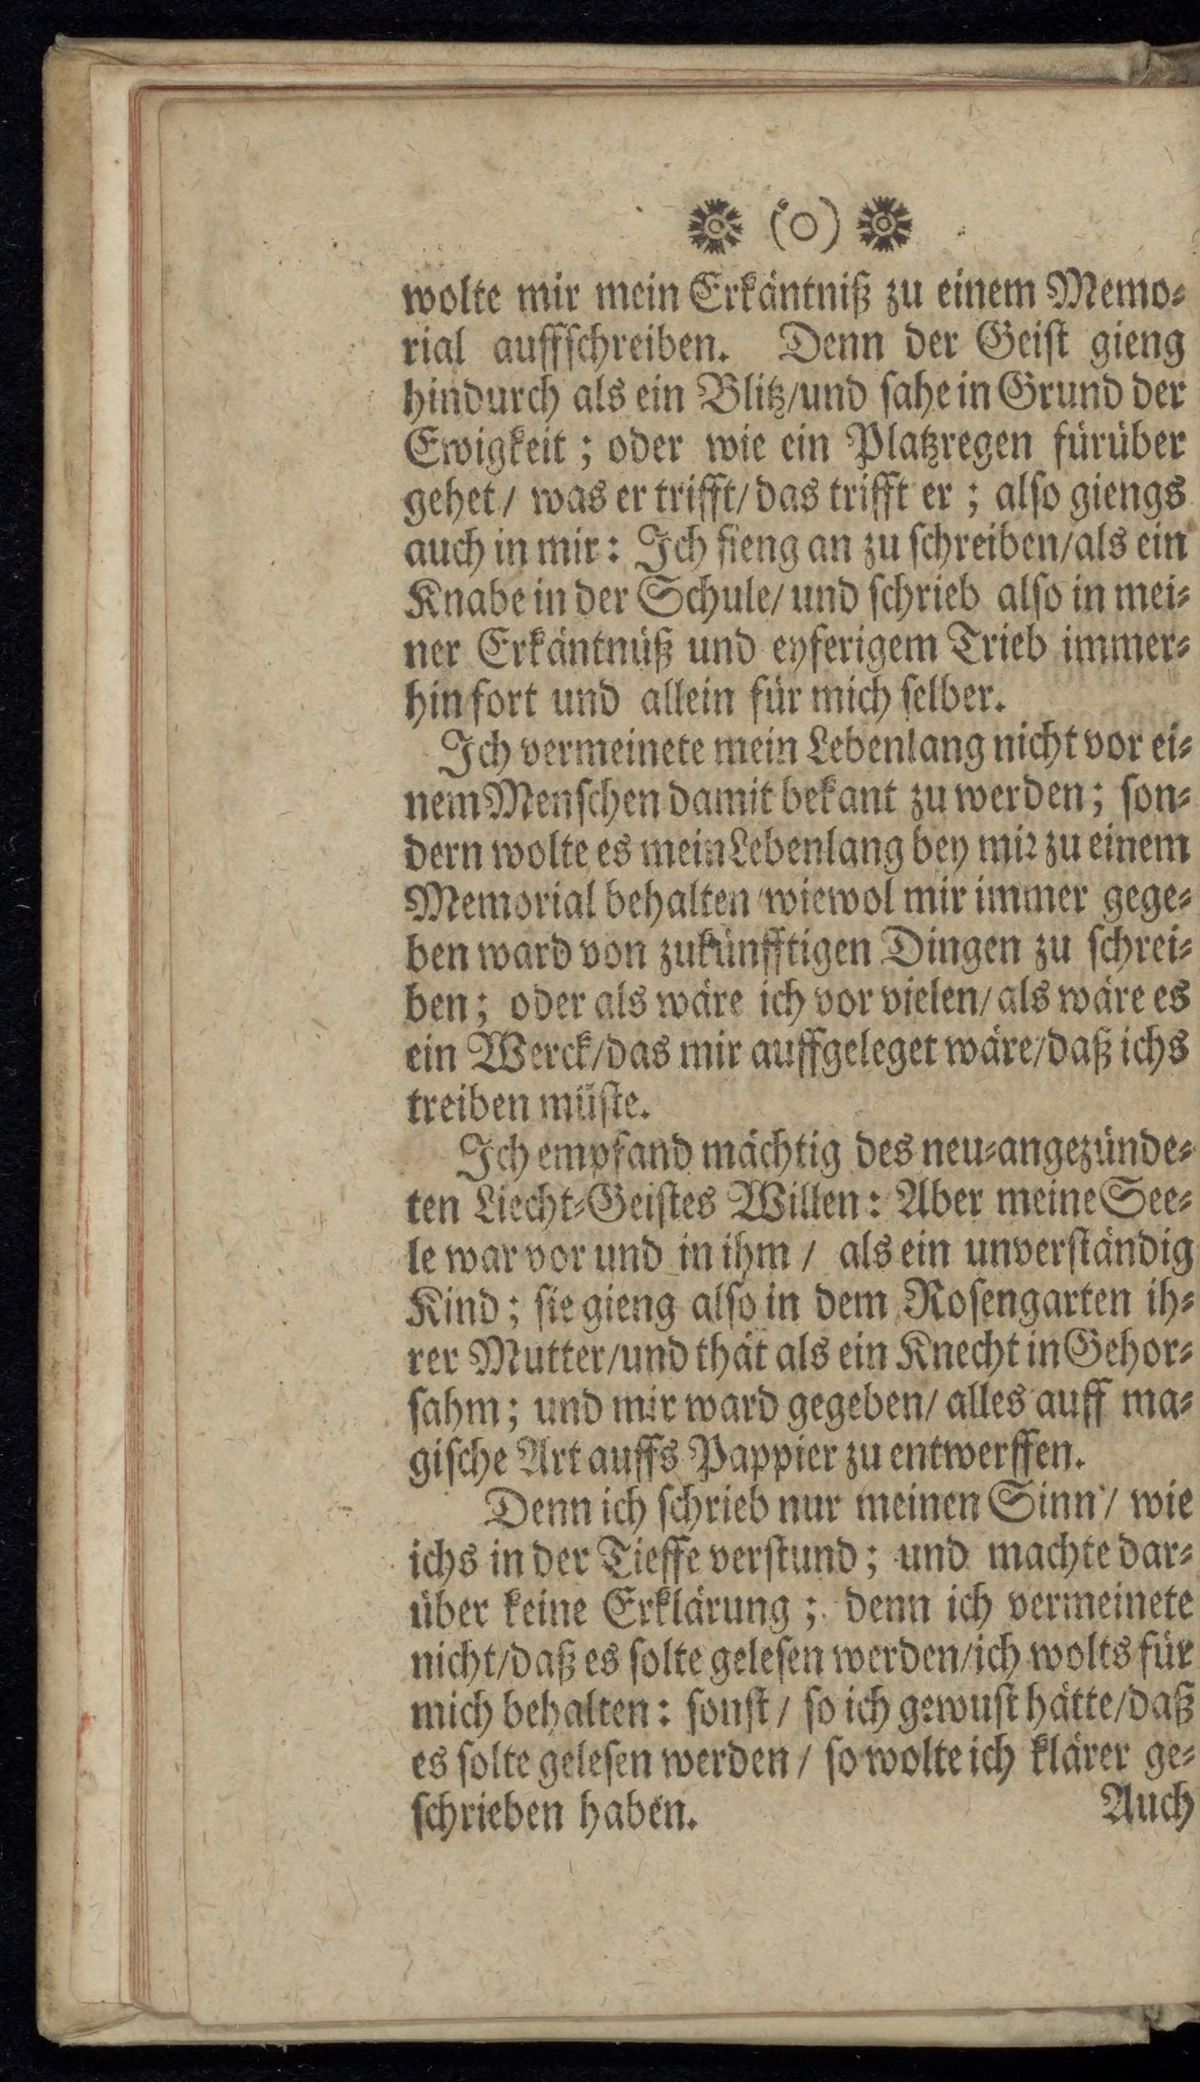 (o)
wolte mir mein Erkäntniß zu einem Memo-
rial auffschreiben. Denn der Geist gieng
hindurch als ein Blitz/und sahe in Grund der
Ewigkeit; oder wie ein Platzregen fürüber
gehet/ was er trifft/ das trifft er; also giengs
auch in mir: Ich fieng an zu schreiben/als ein
Knabe in der Schule/ und schrieb also in mei-
ner Erkäntnüß und eyferigem Trieb immer-
hin fort und allein für mich selber.
Ich vermeinete mein Lebenlang nicht vor ei-
nem Menschen damit bekant zu werden; son-
dern wolte es mein Lebenlang bey mir zu einem
Memorial behalten/wiewol mir immer gege-
ben ward von zukünfftigen Dingen zu schrei-
ben; oder als wäre ich vor vielen/ als wäre es
ein Werck/das mir auffgeleget wäre/daß ichs
treiben müste.
Ich empfand mächtig des neu-angezünde-
ten Liecht-Geistes Willen: Aber meine See-
le war vor und in ihm / als ein unverständig
Kind; sie gieng also in dem Rosengarten ih-
rer Mutter/und thät als ein Knecht in Gehor-
sahm; und mir ward gegeben/ alles auff ma-
gische Art auffs Pappier zu entwerffen.
Denn ich schrieb nur meinen Sinn/ wie
ichs in der Tieffe verstund; und machte dar-
über keine Erklärung; denn ich vermeinete
nicht/daß es solte gelesen werden/ich wolts für
mich behalten: sonst/ so ich gewust hätte/daß
es solte gelesen werden/ so wolte ich klärer ge-
schrieben haben. Auch